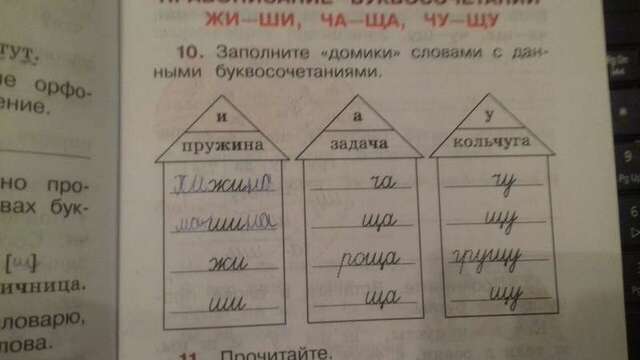 ПРАВОПИСАНИЕ БУКВОСОЧЕТАНИЙ
ЖИ—ШИ, ЧА—ЩА, ЧУ—ЩУ
10. Заполните «домики» словами с дан-
ными буквосочетаниями.
и а у
пружина задача кольчуга
жи ча чу
машина ща щу
жи роща грущу
ши ща щу
11. Прочитайте.
тут.
орфо-
ение.
но про-
вах бук-
[щ]
ичница.
ловарю,
лова.